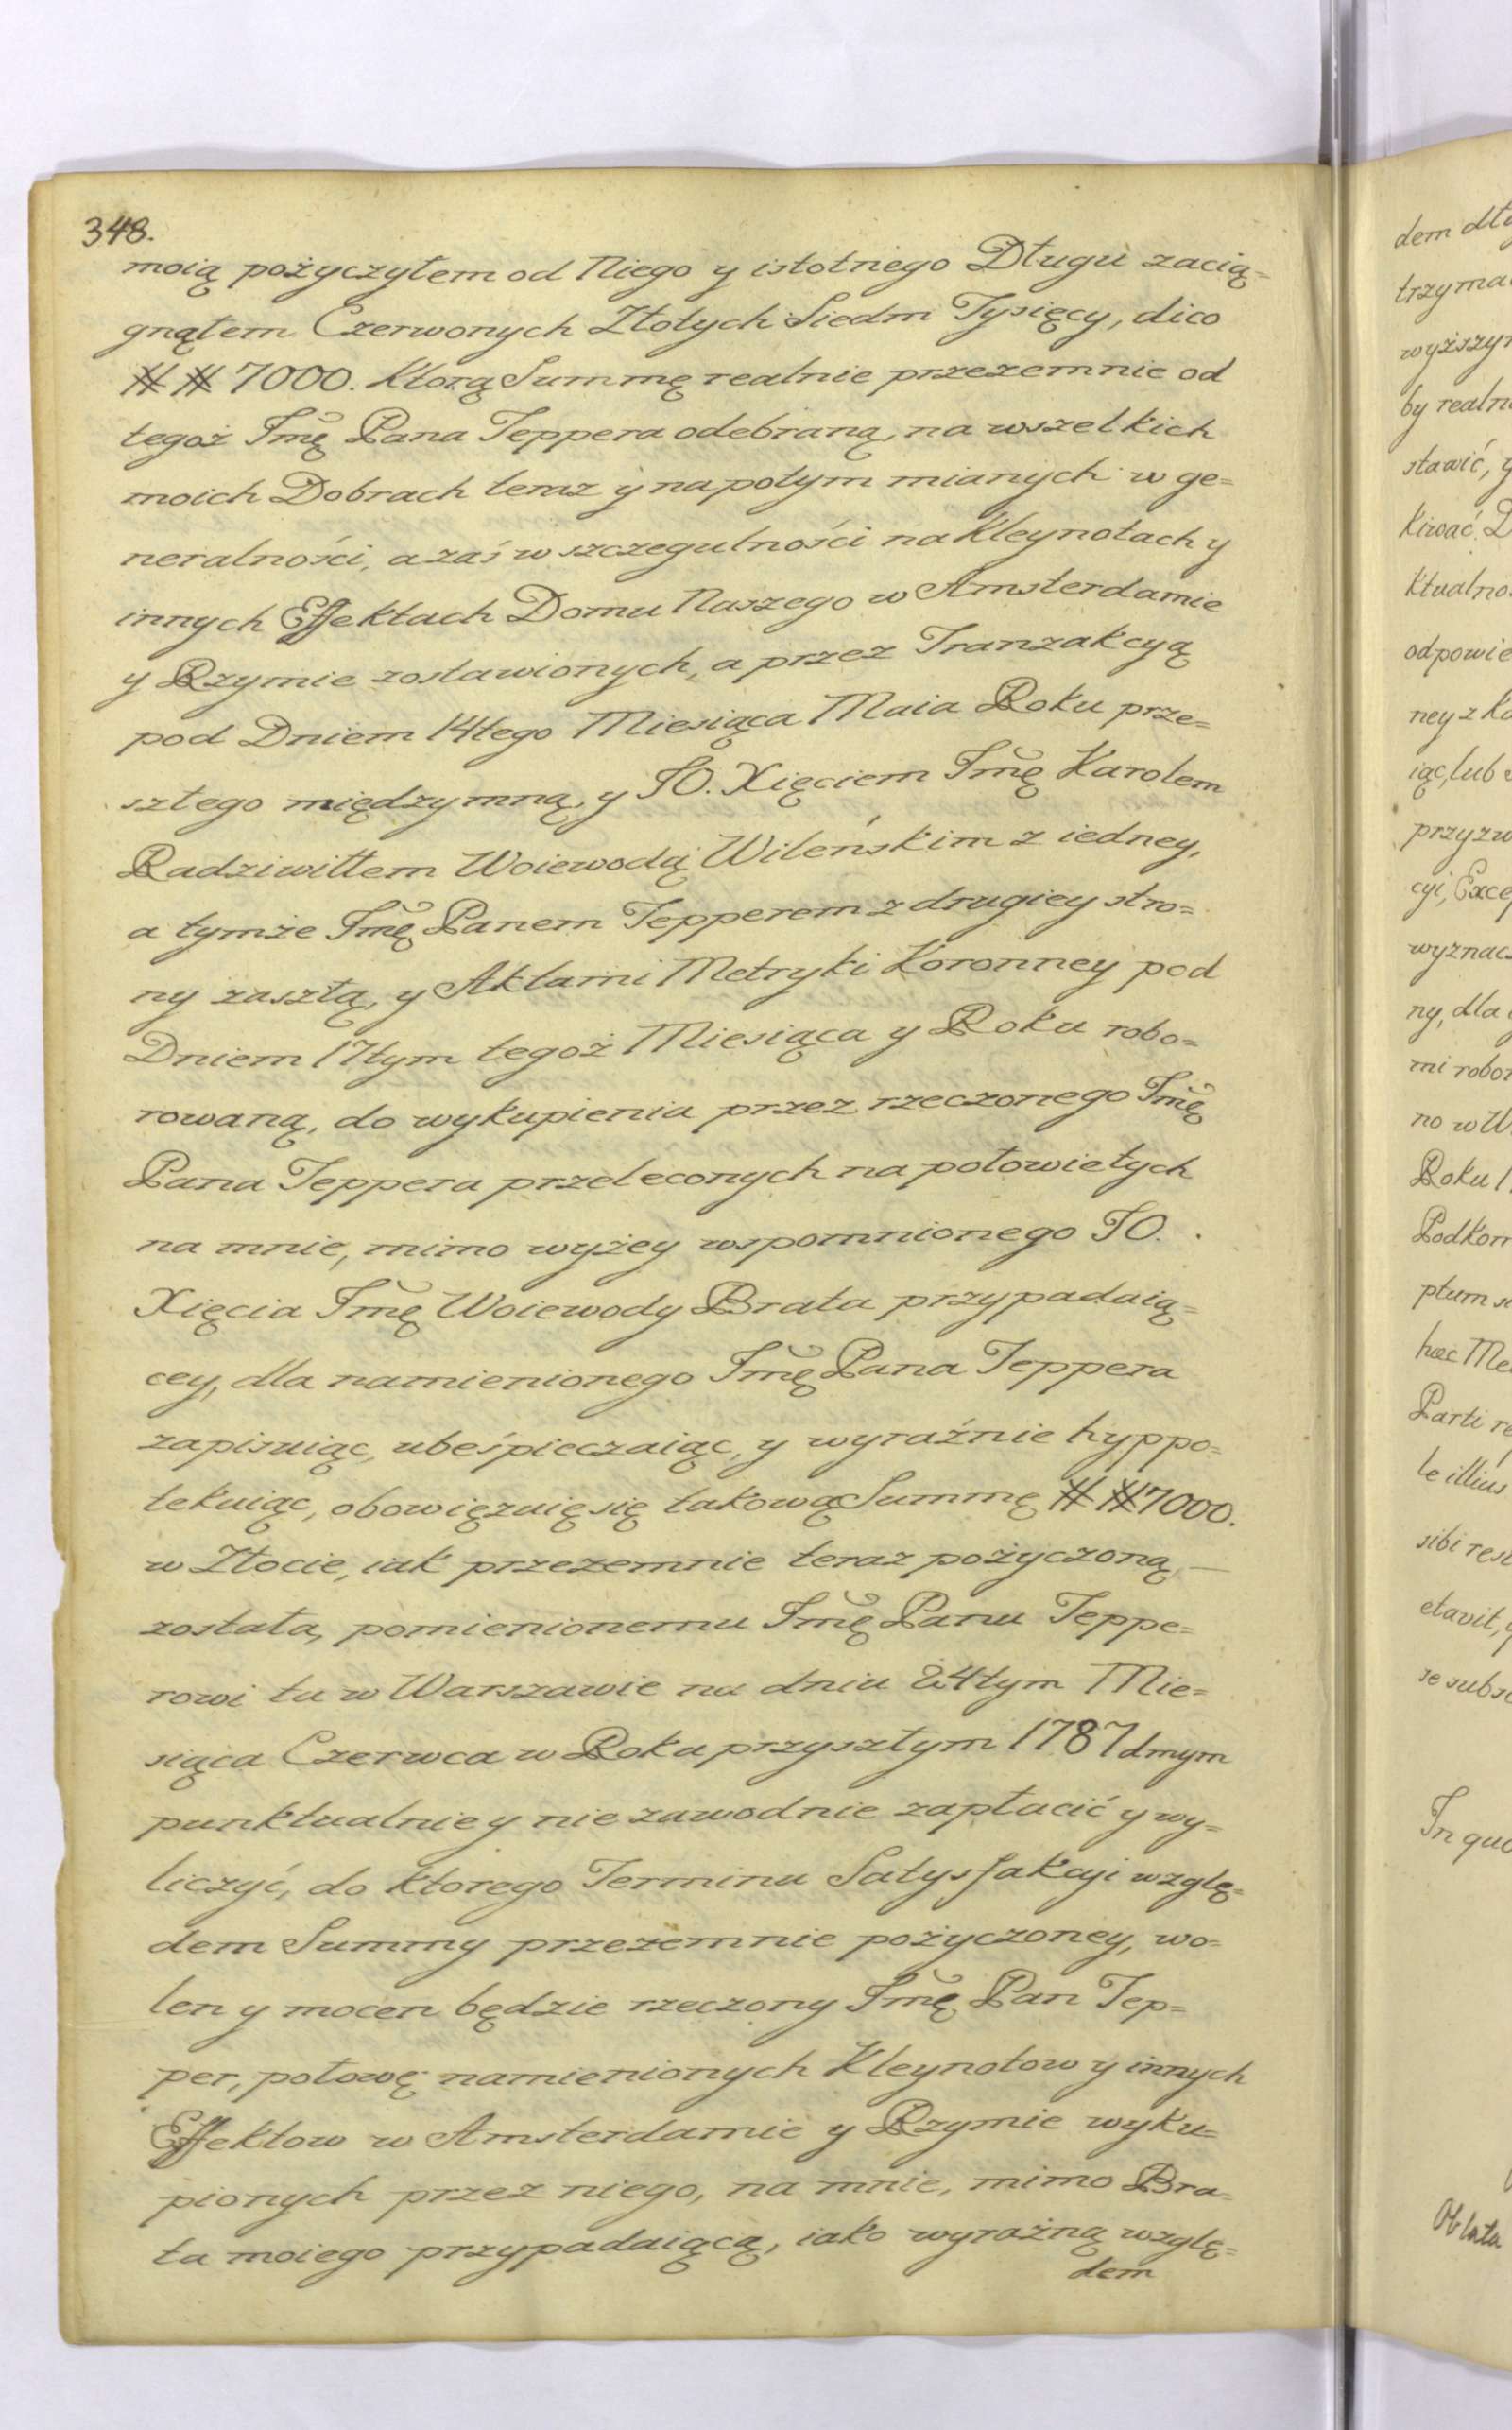 348.
moią pożyczyłem od Niego y istotnego Długu zacią=
gnąłem Czerwonych Złotych Siedm Tysięcy, dico
## 7000. Ktorą Summę realnie przezemnie od
tegoż Jmę Pana Teppera odebraną, na wszelkich
moich Dobrach teraz y napotym mianych w ge=
neralności, a zaś w szczegulności na Kleynotach y
innych Effektach Domu Naszego w Amsterdamie
y Rzymie zostawionych, a przez Tranzakcyą
pod Dniem 14tego Miesiąca Maia Roku prze=
szłego między mną, y JO. Xięciem Jmę Karolem
Radziwiłłem Woiewodą Wileńskim z iedney,
a tymże Jmę Panem Tepperem z drugiey stro=
ny zaszłą, y Aktami Metryki Koronney pod
Dniem 17tym tegoż Miesiąca y Roku robo=
rowaną, do wykupienia przez rzeczonego Jmę
Pana Teppera przeleconych na połowie tych
na mnie, mimo wyżey wspomnionego JO.
Xięcia Jmę Woiewody Brata przypadaią=
cey, dla namienionego Jmę Pana Teppera
zapisuiąc, ubeśpieczaiąc, y wyraźnie hyppo=
tekuiąc, obowięzuię się takową Summę ## 7000.
w Złocie, iak przezemnie teraz pożyczoną
została, pomienionemu Jmę Panu Teppe=
rowi tu w Warszawie na dniu 24tym Mie=
siąca Czerwca w Roku przyszłym 1787dmym
punktualnie y niezawodnie zapłacić y wy=
liczyć, do ktorego Terminu Satysfakcyi wzglę=
dem Summy przezemnie pożyczoney, wo=
len y mocen będzie rzeczony Jmę Pan Tep=
per, połowę namienionych Kleynotow y innych
Effektow w Amsterdamie y Rzymie wyku=
pionych przez niego, na mnie, mimo Bra=
ta moiego przypadaiącą, iako wyraźną wzglę=
dem
dem
trzyma
by realn
stawić, y
kiwać.
odpowie
ney z
iąc, lub
cyi,
ny, dla
no w W
Roku 1
ptum
hæc
Parti
le illius
sibi
etavit,
se
In quo
Oblata